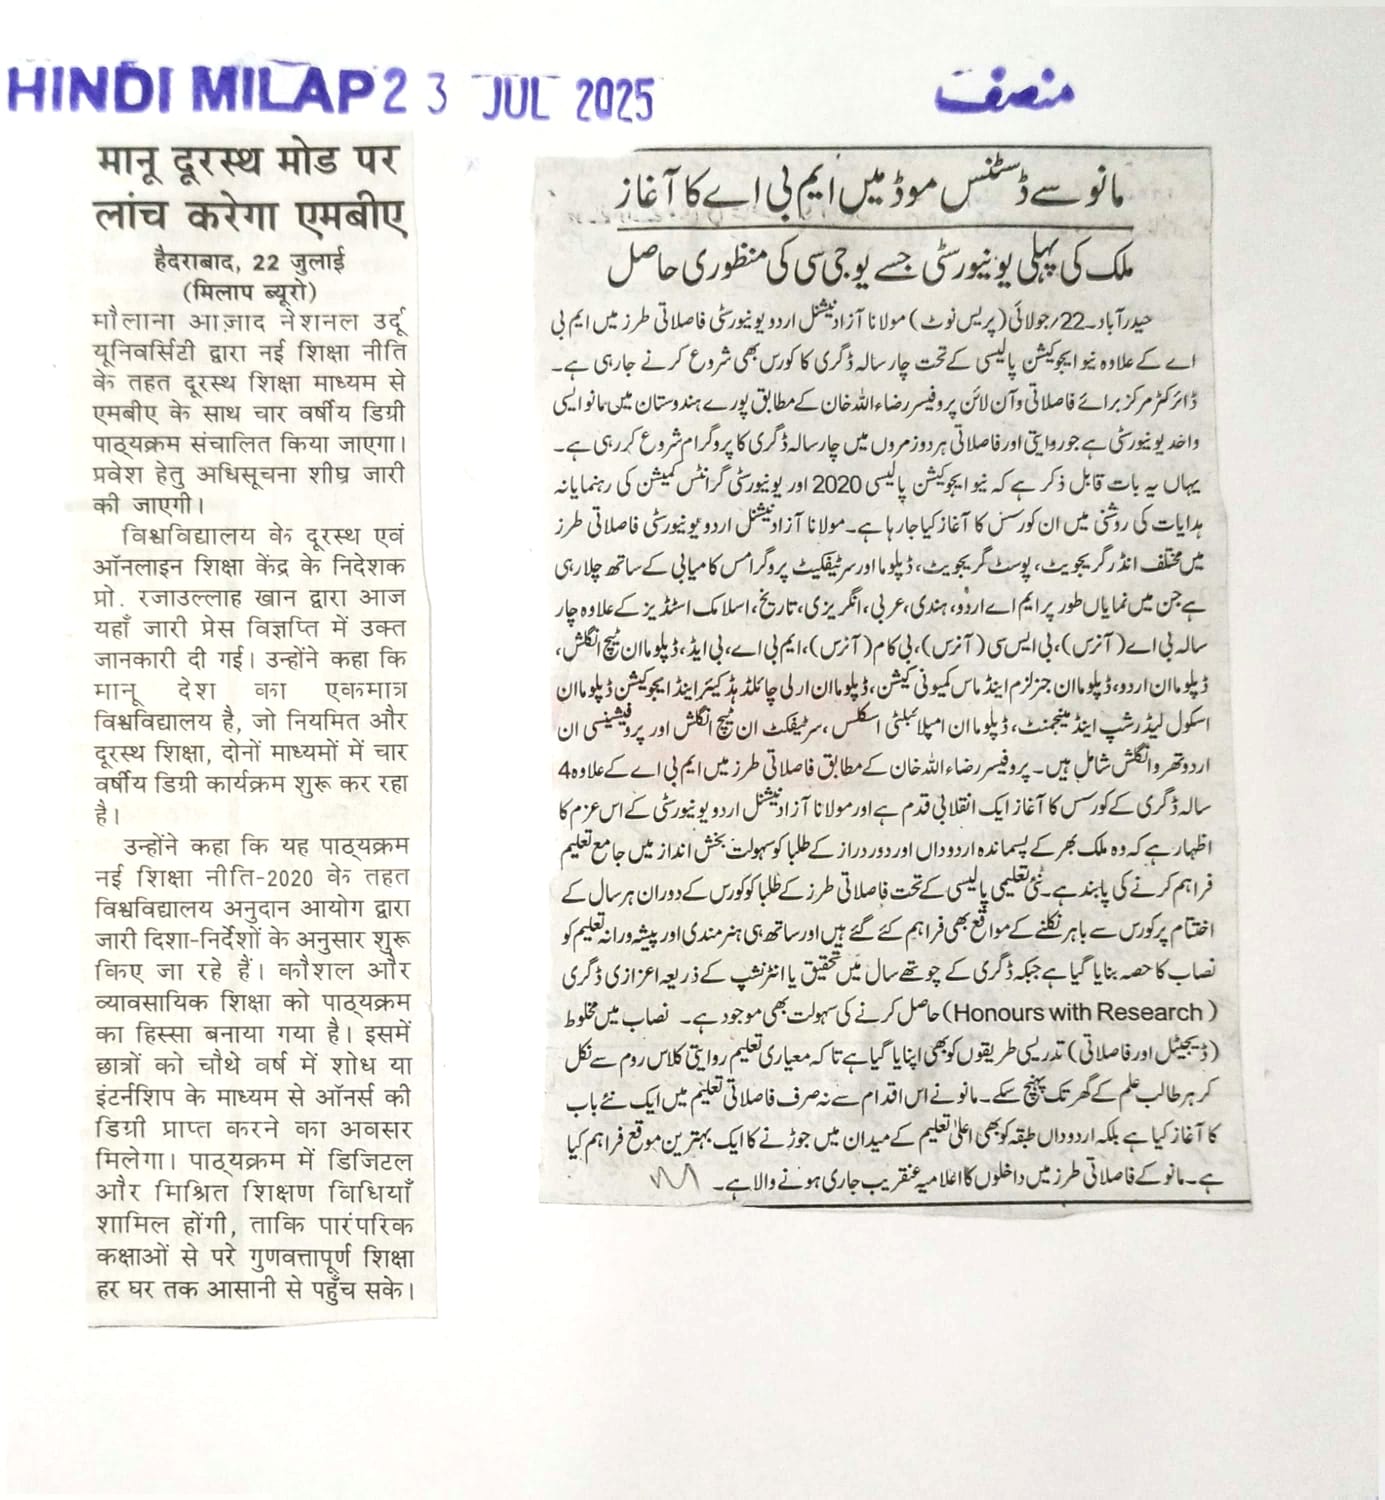 HINDI MILAP 23 JUL 2025
منصف
मानू दूरस्थ मोड पर
लांच करेगा एमबीए
हैदराबाद, 22 जुलाई
(मिलाप ब्यूरो)
मौलाना आज़ाद नेशनल उर्दू
यूनिवर्सिटी द्वारा नई शिक्षा नीति
के तहत दूरस्थ शिक्षा माध्यम से
एमबीए के साथ चार वर्षीय डिग्री
पाठ्यक्रम संचालित किया जाएगा।
प्रवेश हेतु अधिसूचना शीघ्र जारी
की जाएगी।
विश्वविद्यालय के दूरस्थ एवं
ऑनलाइन शिक्षा केंद्र के निदेशक
प्रो. रजाउल्लाह खान द्वारा आज
यहाँ जारी प्रेस विज्ञप्ति में उक्त
जानकारी दी गई। उन्होंने कहा कि
मानू देश का एकमात्र
विश्वविद्यालय है, जो नियमित और
दूरस्थ शिक्षा, दोनों माध्यमों में चार
वर्षीय डिग्री कार्यक्रम शुरू कर रहा
है।
उन्होंने कहा कि यह पाठ्यक्रम
नई शिक्षा नीति-2020 के तहत
विश्वविद्यालय अनुदान आयोग द्वारा
जारी दिशा-निर्देशों के अनुसार शुरू
किए जा रहे हैं। कौशल और
व्यावसायिक शिक्षा को पाठ्यक्रम
का हिस्सा बनाया गया है। इसमें
छात्रों को चौथे वर्ष में शोध या
इंटर्नशिप के माध्यम से ऑनर्स की
डिग्री प्राप्त करने का अवसर
मिलेगा। पाठ्यक्रम में डिजिटल
और मिश्रित शिक्षण विधियाँ
शामिल होंगी, ताकि पारंपरिक
कक्षाओं से परे गुणवत्तापूर्ण शिक्षा
हर घर तक आसानी से पहुँच सके।
مانو سے ڈسٹنس موڈ میں ایم بی اے کا آغاز
ملک کی پہلی یونیورسٹی جسے یو جی سی کی منظوری حاصل
حیدرآباد۔22؍جولائی (پریس نوٹ) مولانا آزاد نیشنل اردو یونیورسٹی فاصلاتی طرز میں ایم بی
اے کے علاوہ نیو ایجوکیشن پالیسی کے تحت چار سالہ ڈگری کا کورس بھی شروع کرنے جارہی ہے۔
ڈائرکٹر مرکز برائے فاصلاتی و آن لائن پروفیسر رضاء اللہ خان کے مطابق پورے ہندوستان میں مانو ایسی
واحد یونیورسٹی ہے جو روایتی اور فاصلاتی ہر دو زمروں میں چار سالہ ڈگری کا پروگرام شروع کررہی ہے۔
یہاں یہ بات قابل ذکر ہے کہ نیو ایجوکیشن پالیسی 2020 اور یونیورسٹی گرانٹس کمیشن کی رہنمایانہ
ہدایات کی روشنی میں ان کورسس کا آغاز کیا جارہا ہے۔ مولانا آزاد نیشنل اردو یونیورسٹی فاصلاتی طرز
میں مختلف انڈر گریجویٹ، پوسٹ گریجویٹ، ڈپلوما اور سرٹیفکیٹ پروگرامس کامیابی کے ساتھ چلا رہی
ہے جن میں نمایاں طور پر ایم اے اردو، ہندی، عربی، انگریزی، تاریخ، اسلامک اسٹڈیز کے علاوہ چار
سالہ بی اے (آنرس)، بی ایس سی (آنرس)، بی کام (آنرس)، ایم بی اے، بی ایڈ، ڈپلوما ان ٹیچ انگلش،
ڈپلوما ان اردو، ڈپلوما ان جرنلزم اینڈ ماس کمیونی کیشن، ڈپلوما ان ارلی چائلڈ ہڈ کیئر اینڈ ایجوکیشن ڈپلوما ان
اسکول لیڈر شپ اینڈ مینجمنٹ، ڈپلوما ان امپلائبلٹی اسکلس، سرٹیفکٹ ان ٹیچ انگلش اور پروفیشنسی ان
اردو تھرو انگلش شامل ہیں۔ پروفیسر رضاء اللہ خان کے مطابق فاصلاتی طرز میں ایم بی اے کے علاوہ 4
سالہ ڈگری کے کورسس کا آغاز ایک انقلابی قدم ہے اور مولانا آزاد نیشنل اردو یونیورسٹی کے اس عزم کا
اظہار ہے کہ وہ ملک بھر کے پسماندہ اردو داں اور دور دراز کے طلبا کو سہولت بخش انداز میں جامع تعلیم
فراہم کرنے کی پابند ہے۔ نئی تعلیمی پالیسی کے تحت فاصلاتی طرز کے طلبا کو کورس کے دوران ہر سال کے
اختتام پر کورس سے باہر نکلنے کے مواقع بھی فراہم کئے گئے ہیں اور ساتھ ہی ہنر مندی اور پیشہ ورانہ تعلیم کو
نصاب کا حصہ بنایا گیا ہے جبکہ ڈگری کے چوتھے سال میں تحقیق یا انٹرنشپ کے ذریعہ اعزازی ڈگری
(Honours with Research) حاصل کرنے کی سہولت بھی موجود ہے۔ نصاب میں مخلوط
(ڈیجیٹل اور فاصلاتی) تدریسی طریقوں کو بھی اپنایا گیا ہے تاکہ معیاری تعلیم روایتی کلاس روم سے نکل
کر ہر طالب علم کے گھر تک پہنچ سکے۔ مانو نے اس اقدام سے نہ صرف فاصلاتی تعلیم میں ایک نئے باب
کا آغاز کیا ہے بلکہ اردو داں طبقہ کو بھی اعلیٰ تعلیم کے میدان میں جوڑنے کا ایک بہترین موقع فراہم کیا
ہے۔ مانو کے فاصلاتی طرز میں داخلوں کا اعلامیہ عنقریب جاری ہونے والا ہے۔